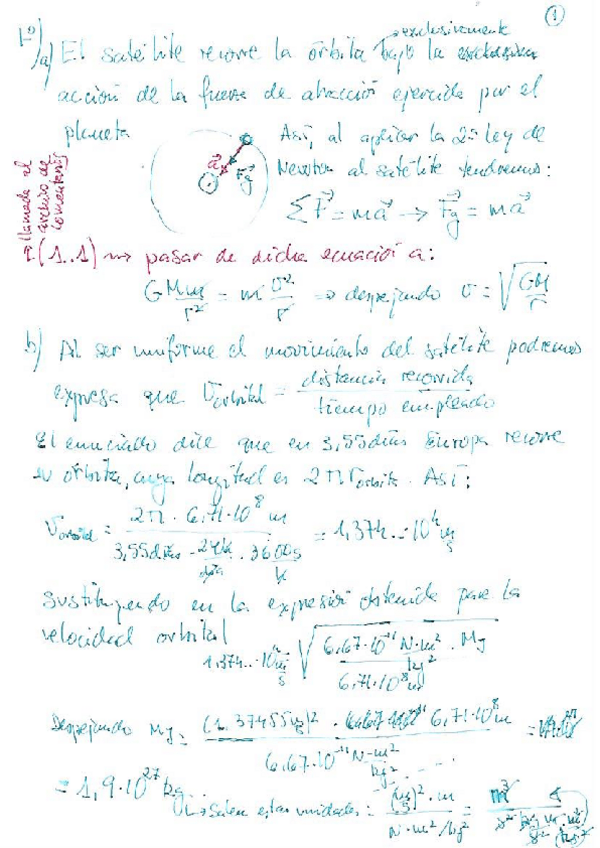 ①
1º) a) El satélite recorre la órbita bajo la exclusivamente
acción de la fuerza de atracción ejercida por el
planeta
Así, al aplicar la 2ª Ley de
Newton al satélite tendremos:
a⃗
F⃗g
ΣF⃗ = ma⃗ → F⃗g = ma⃗
llamada al
archivo de
comentarios
(1..1) ⇝ pasar de dicha ecuación a:
G Mm/r² = m v²/r ⇒ despejando v = √(GM/r)
b) Al ser uniforme el movimiento del satélite podremos
expresa que v orbital = distancia recorrida / tiempo empleado
El enunciado dice que en 3,55 días Europa recorre
su órbita, cuya longitud es 2π r órbita. Así:
v orbital = 2π · 6,71·10⁸ m / 3,55 días · 24h/día · 3600s/h = 1,374..·10⁴ m/s
Sustituyendo en la expresión obtenida para la
velocidad orbital
1,374..·10⁴ m/s √(6,67·10⁻¹¹ N·m²/kg² · MJ / 6,71·10⁸ m)
Despejando MJ = (1,37455)² · 6,71·10⁸ m / 6,67·10⁻¹¹ N·m²/kg² =
= 1,9·10²⁷ kg
↳ Salen estas unidades: (m/s)² · m / N·m²/kg² = m³